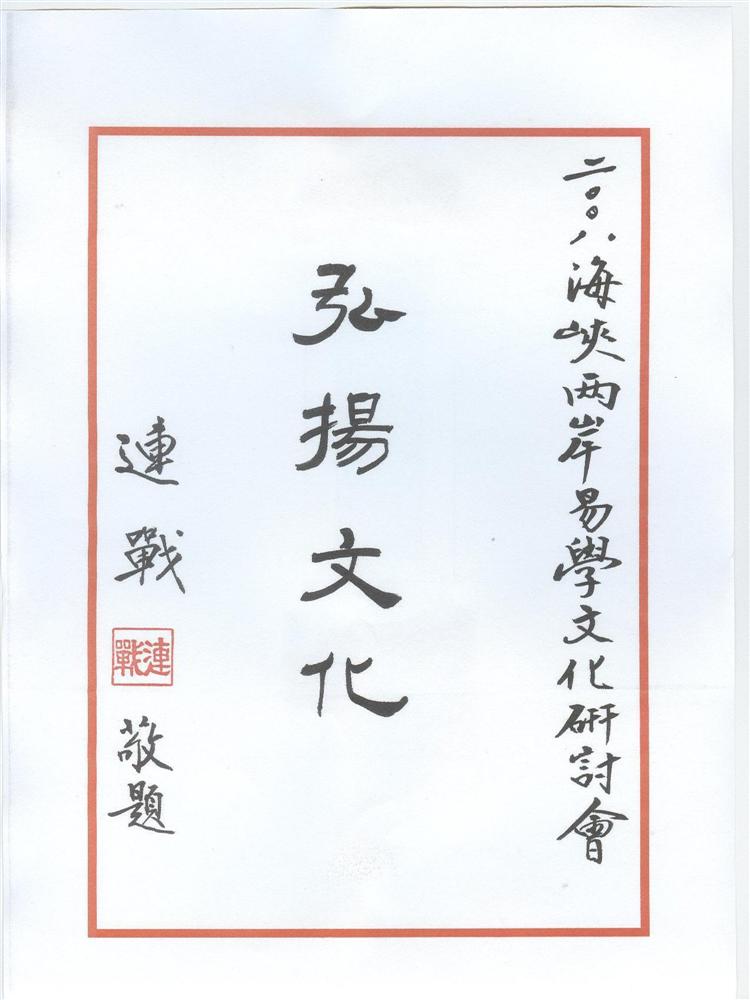 二〇〇八海峽两岸易學文化研討會
弘揚文化
連戰
連戰
敬題